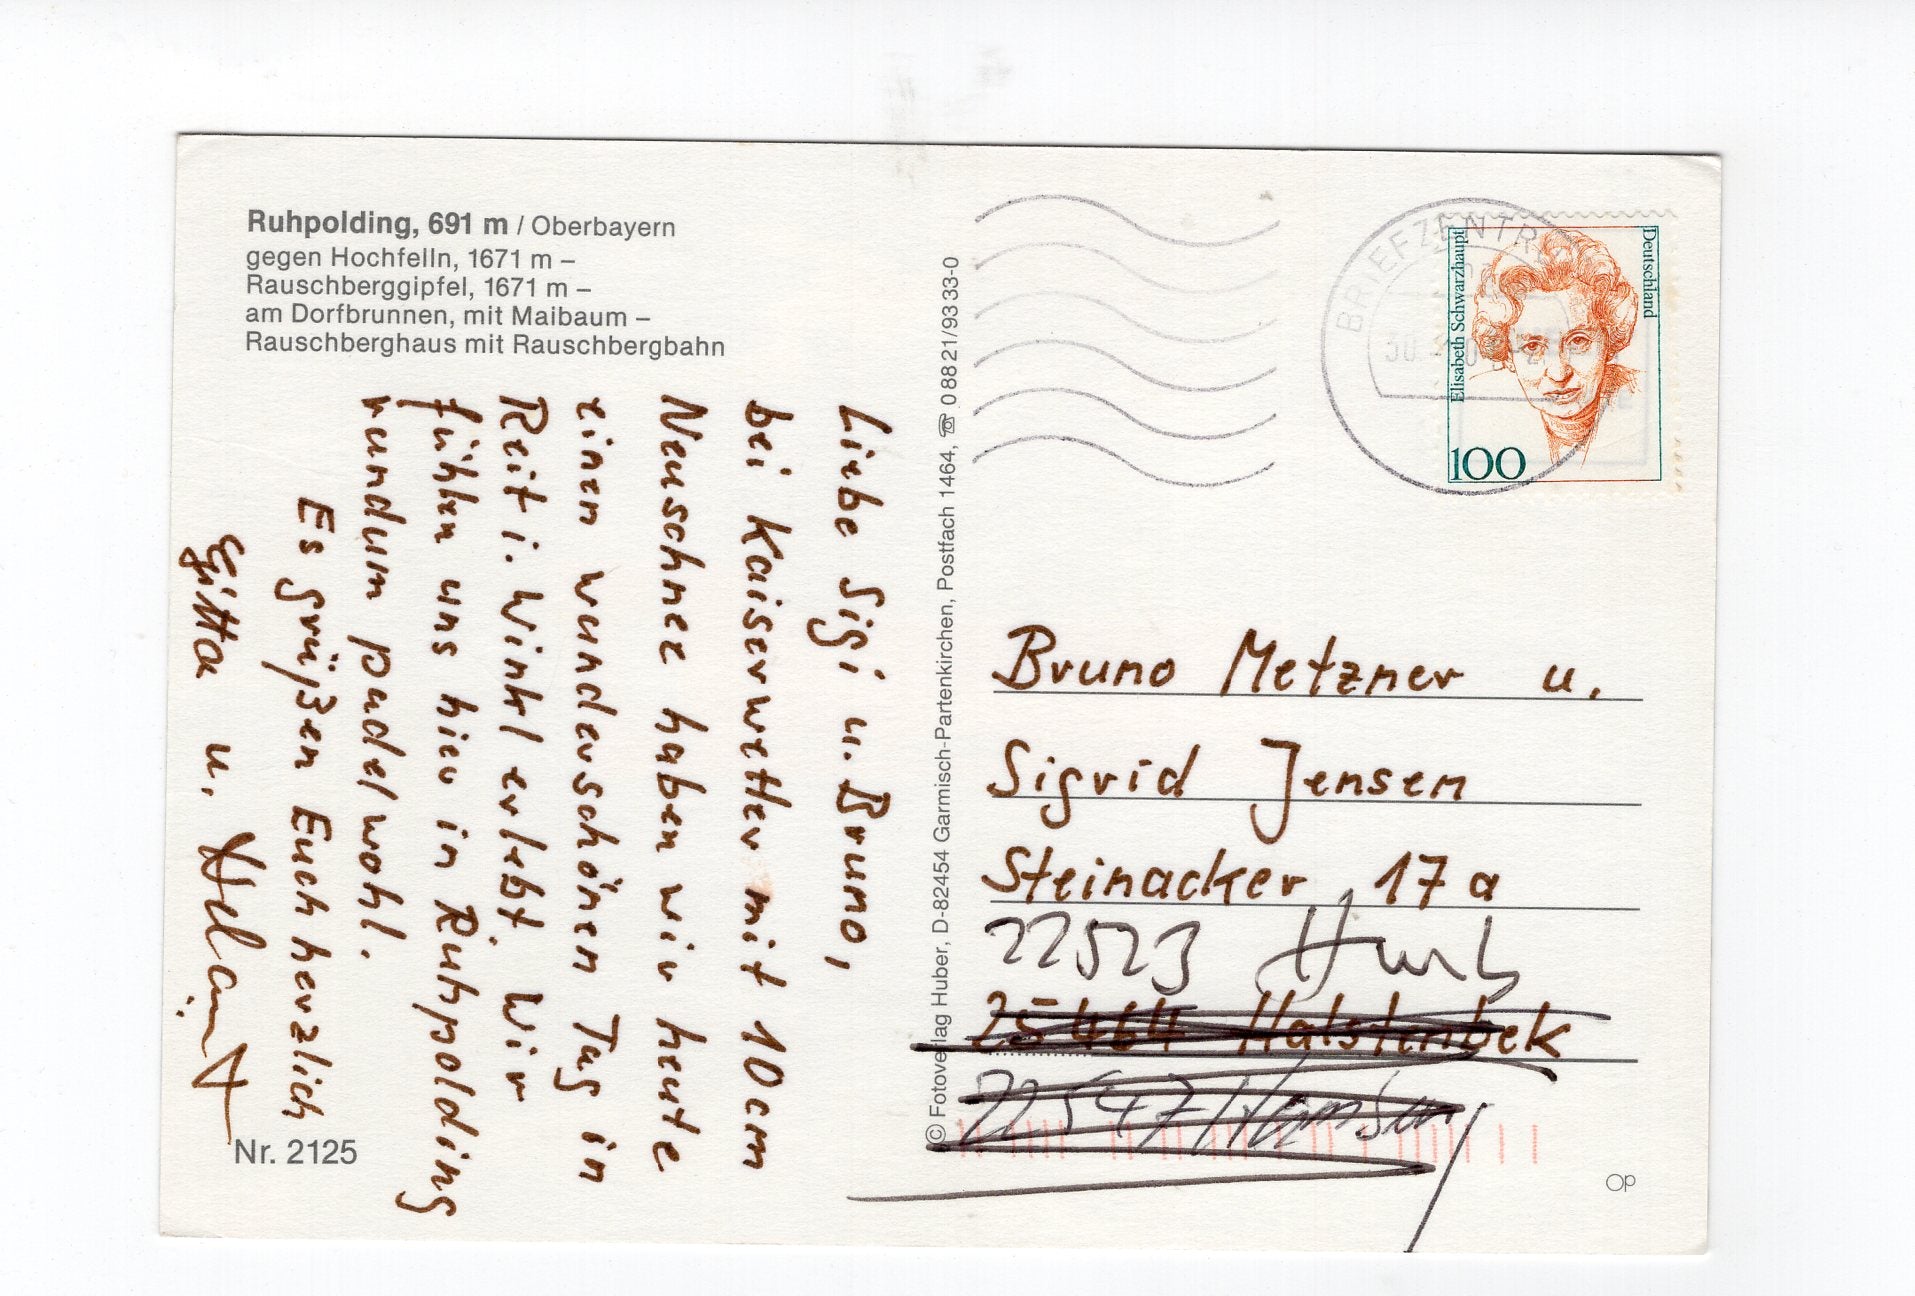 Ruhpolding, 691 m / Oberbayern
gegen Hochfelln, 1671 m –
Rauschberggipfel, 1671 m –
am Dorfbrunnen, mit Maibaum –
Rauschberghaus mit Rauschbergbahn
Liebe Sigi u. Bruno,
bei Kaiserwetter mit 10cm
Neuschnee haben wir heute
einen wunderschönen Tag in
Reit i. Winkl erlebt. Wir
fühlen uns hier in Ruhpolding
rundum pudelwohl.
Es grüßen Euch herzlich
Gitta u. Helmut
Nr. 2125
© Fotoverlag Huber, D-82454 Garmisch-Partenkirchen, Postfach 1464, ☏ 0 88 21/93 33-0
BRIEFZENTR
30.
Deutschland
Elisabeth Schwarzhaupt
100
Bruno Metzner u.
Sigrid Jensen
Steinacker 17a
22523 Hmb
25464 Halstenbek
22547 Hamburg
Op